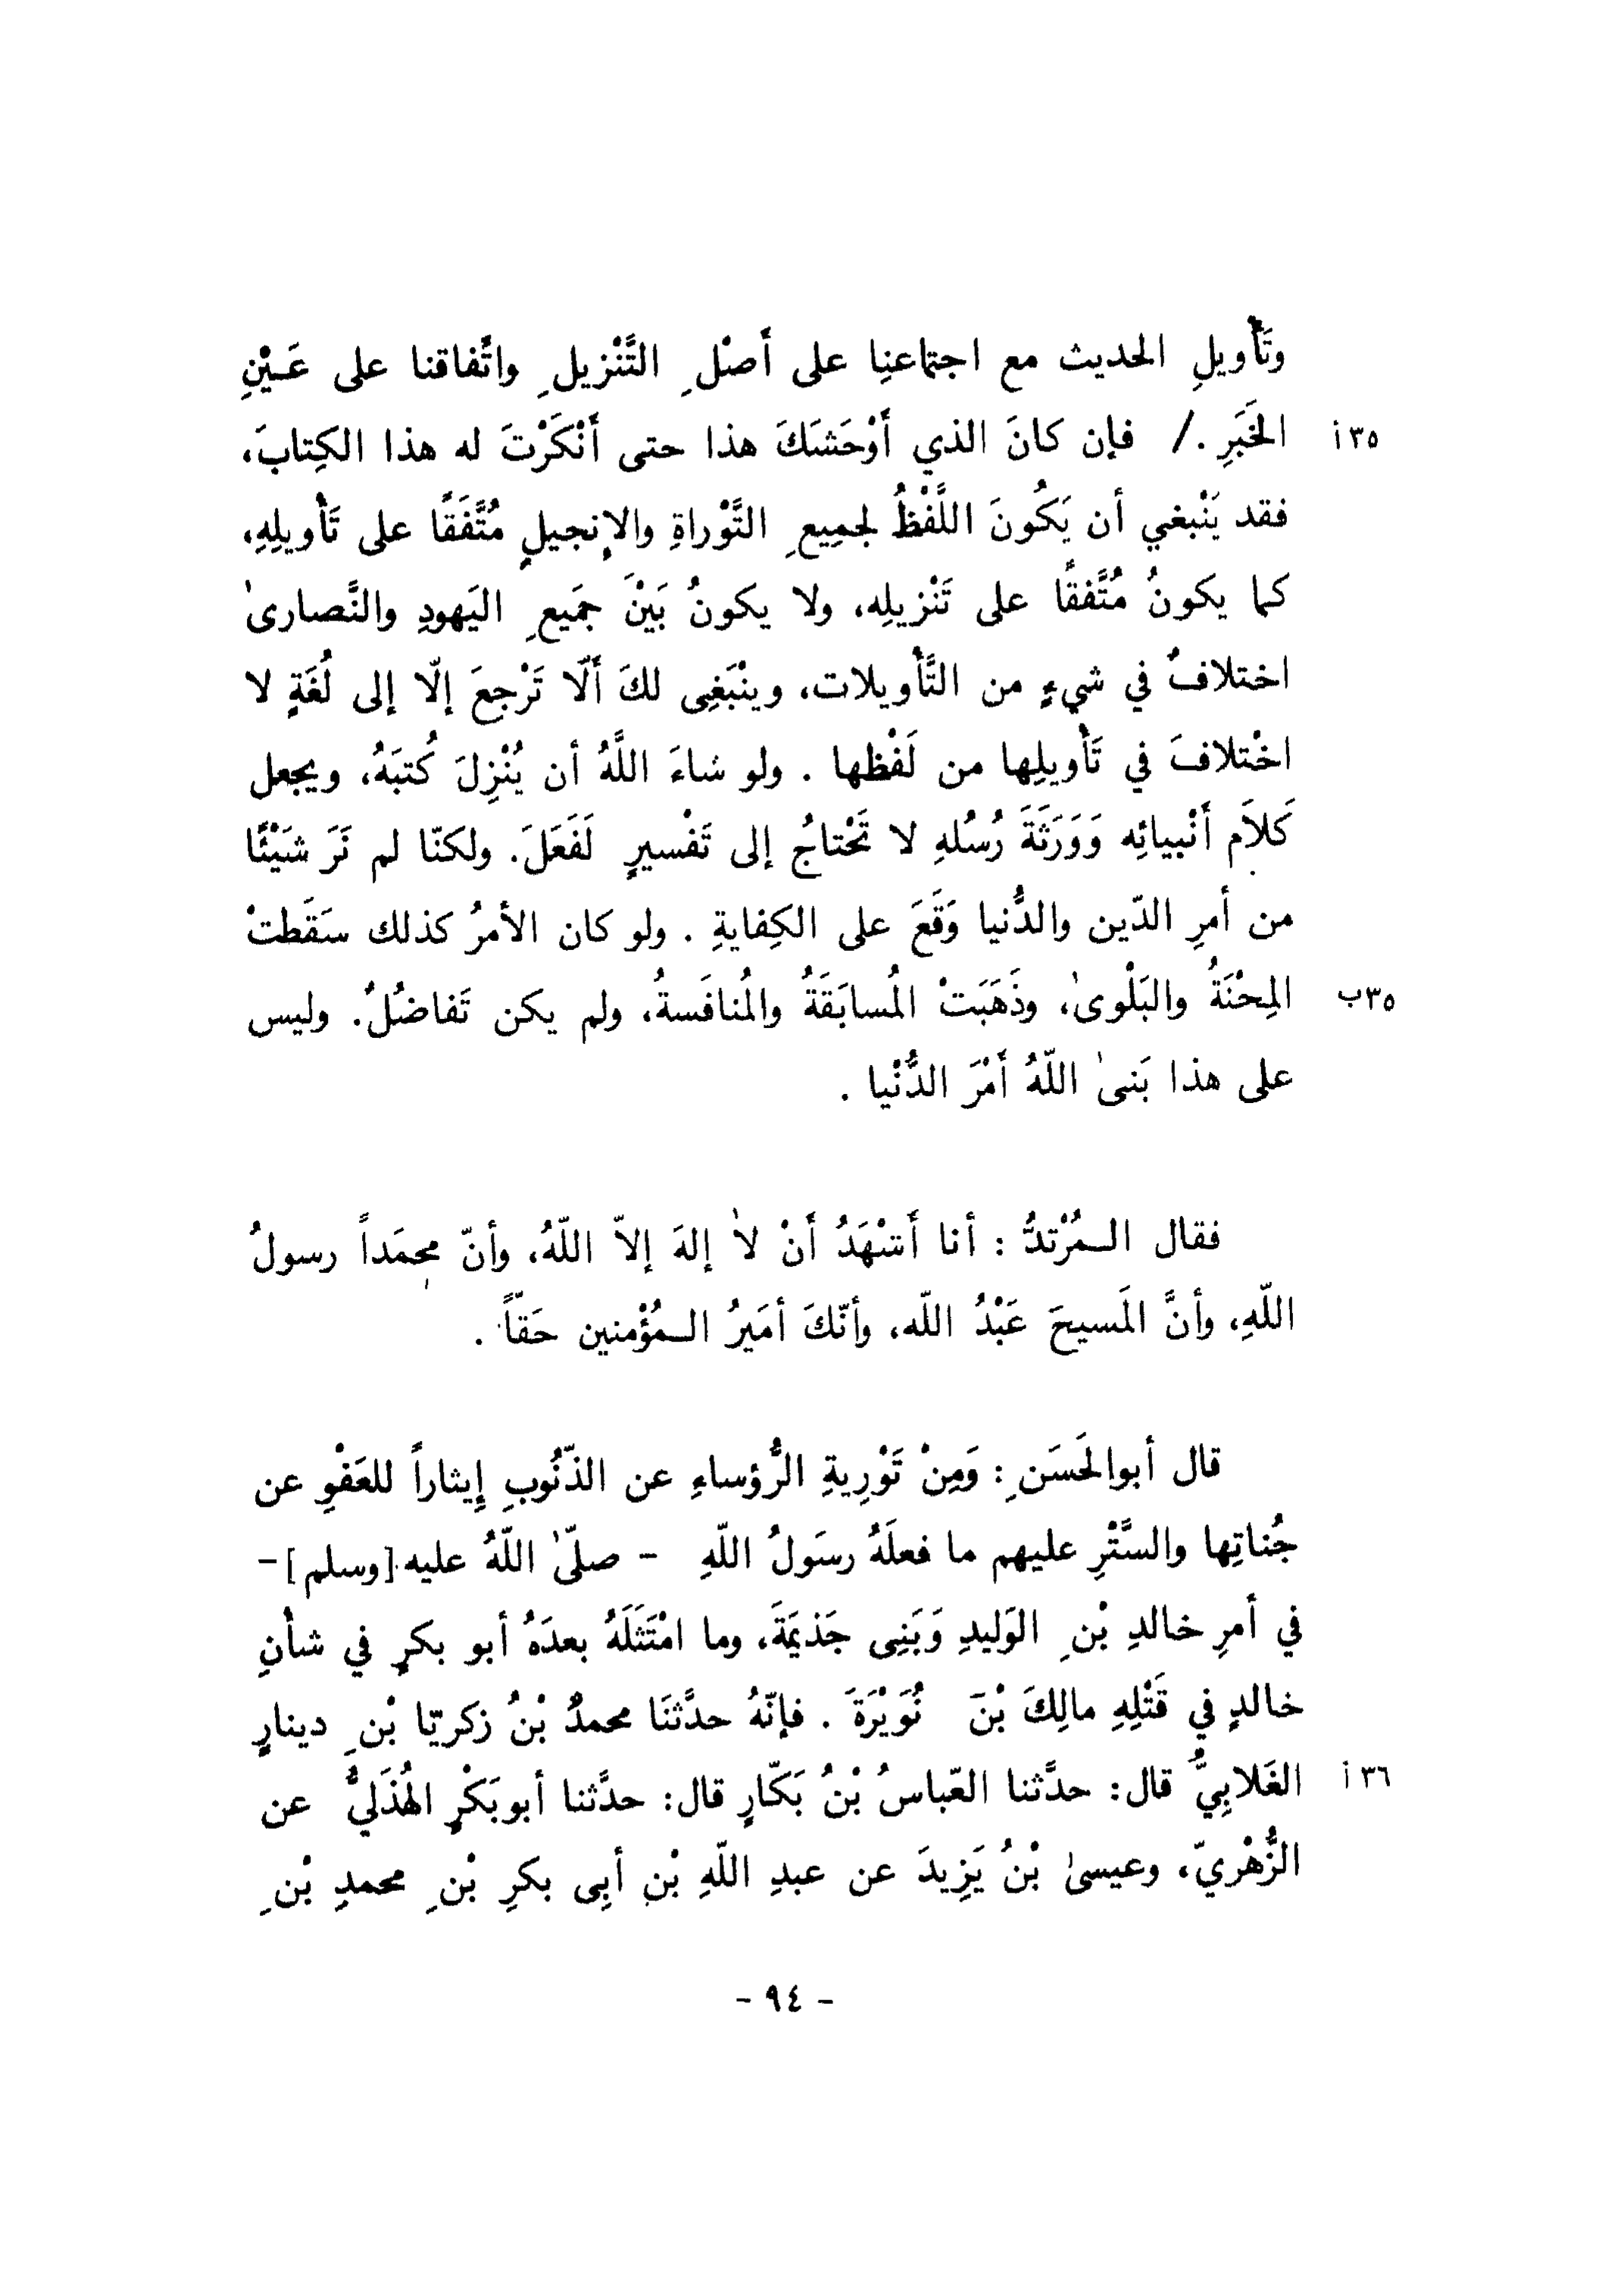 وتَأْويلِ الحديث مع اجتماعنِا على أَصْلِ التَّنْزيلِ واتِّفاقنا على عَـيْنِ
الخَبَرِ ./ فإن كانَ الذي أَوْحَشَكَ هذا حتى أَنْكَرْتَ له هذا الكِتابَ، ٣٥ أ
فقد يَنْبغي أن يَكُونَ اللَّفْظُ لجمِيعِ التَّوْراةِ والإنجيلِ مُتَّفَقًا على تَأْويلِهِ،
كما يكونُ مُتَّفقًا على تَنْزيلِه، ولا يكونُ بَيْنَ جمَيعِ اليَهودِ والنَّصارىٰ
اختلافٌ في شيءٍ من التَّأْويلات، وينْبَغِى لكَ أَلّا تَرْجعَ إلّا إلى لُغَةٍ لا
اخْتلافَ في تَأْويلِها من لَفْظها . ولو شاءَ اللَّهُ أن يُنْزِلَ كُتبَهُ، ويجعل
كَلاَم أَنْبيائِه وَوَرَثَةَ رُسُلهِ لا تَحْتاجُ إلى تَفْسيرٍ لَفَعَلَ. ولكنّا لم نَرَ شَيْئًا
من أمرِ الدّين والدُّنيا وَقَعَ على الكِفايةِ . ولو كان الأمرُ كذلك سَقَطتْ
المِحْنَةُ والبَلْوىٰ، وذَهَبَتْ المُسابَقَةُ والمُنافَسةُ، ولم يكن تَفاضُلٌ. وليس ٣٥ب
على هذا بَنىٰ اللّهُ أَمْرَ الدُّنْيا .
فقال الـمُرْتدُّ : أنا أَشْهَدُ أَنْ لاٰ إلهَ إلاّ اللّهُ، وأنّ محمَداً رسولُ
اللّهِ، وأنَّ المَسيحَ عَبْدُ اللّه، وأنّكَ أمَيرُ الـمُؤْمنين حَقّاً .
قال أبوالحَسَنِ : وَمِنْ تَوْرِيةِ الرُّؤساءِ عن الذّنُوبِ إِيثاراً للعَفْوِ عن
جُناتِها والسَّتْرِ عليهم ما فعلَهُ رسَولُ اللّهِ - صلّىٰ اللّهُ عليه [وسلم] -
في أمرِ خالدِ بْنِ الوَليدِ وَبَنِى جَذيمَةَ، وما امْتَثَلَهُ بعدَهُ أبو بكرٍ في شأْنِ
خالدٍ في قَتْلِهِ مالِكَ بْنَ نُوَيْرَةَ . فإنّهُ حدَّثنَا محمدُ بْنُ زكريّا بْنِ دينارٍ
الغَلابِيُّ قال: حدَّثنا العّباسُ بْنُ بَكّارٍ قال: حدَّثنا أبوبَكْرٍ الهُذَليُّ عن ٣٦ أ
الزُّهْريّ، وعيسىٰ بْنُ يَزِيدَ عن عبدِ اللّهِ بْنِ أبِى بكرِ بْنِ محمدِ بْنِ
- ٩٤ -